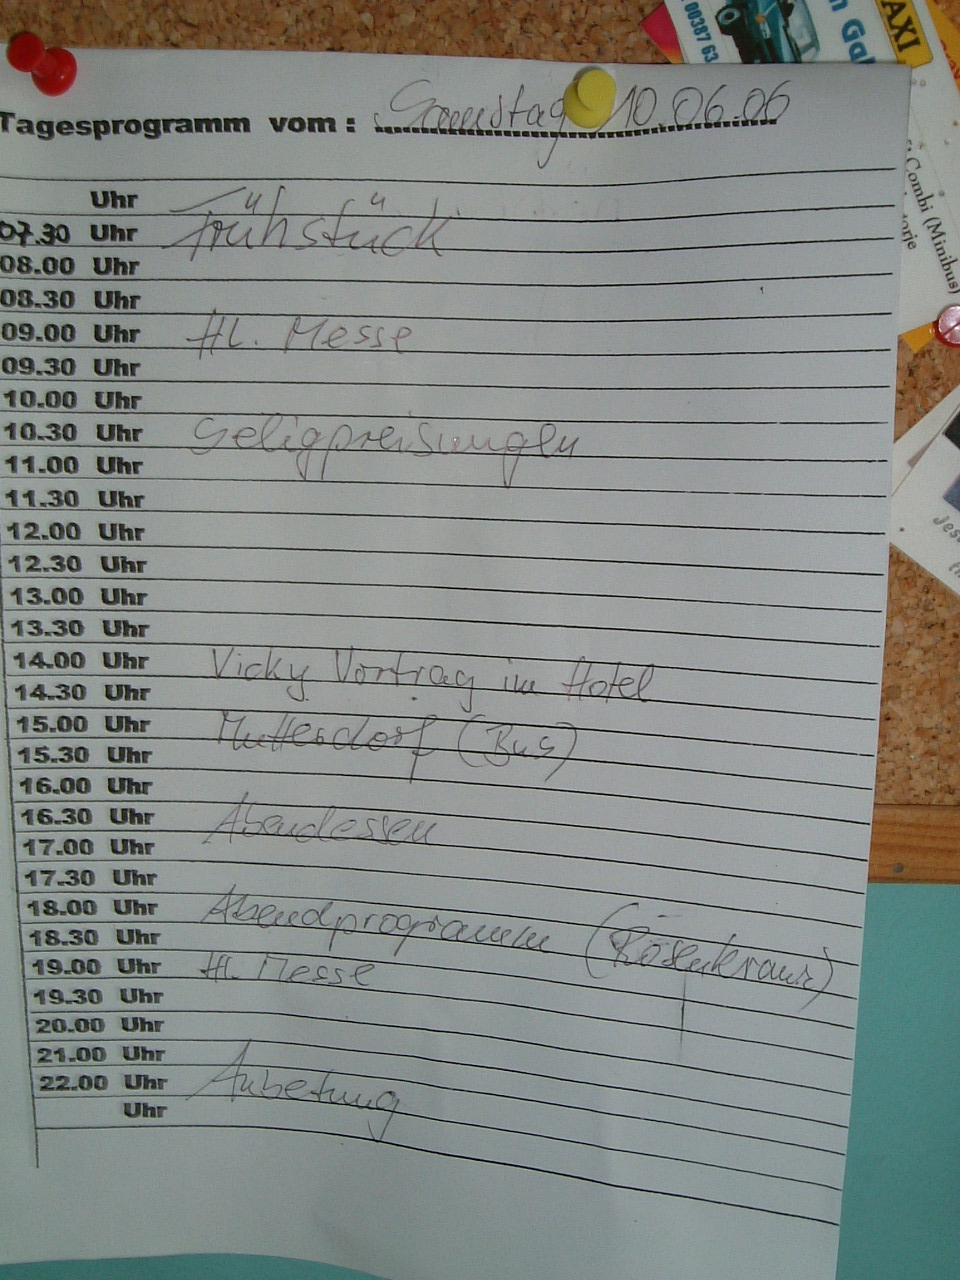 Tagesprogramm vom: Samstag 10.06.06
Uhr
07.30 Uhr Frühstück
08.00 Uhr
08.30 Uhr
09.00 Uhr Hl. Messe
09.30 Uhr
10.00 Uhr
10.30 Uhr Seligpreisungen
11.00 Uhr
11.30 Uhr
12.00 Uhr
12.30 Uhr
13.00 Uhr
13.30 Uhr
14.00 Uhr Vicky Vortrag im Hotel
14.30 Uhr
15.00 Uhr Mutterdorf (Bus)
15.30 Uhr
16.00 Uhr
16.30 Uhr Abendessen
17.00 Uhr
17.30 Uhr
18.00 Uhr Abendprogramm (Rosenkranz)
18.30 Uhr
19.00 Uhr Hl. Messe
19.30 Uhr
20.00 Uhr
21.00 Uhr
22.00 Uhr Anbetung
Uhr
00387 63
TAXI
Combi (Minibus)